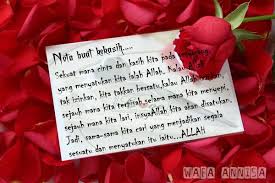 Nota buat kekasih.....
Sekuat mana cinta dan kasih kita pada
yang menyatukan kita ialah Allah. Kalau Allah
tak izinkan, kita takkan bersatu, kalau
sejauh mana kita terpisah, selama mana kita menyepi,
sejauh mana kita lari, insyaAllah kita akan disatukan.
Jadi, sama-sama kita cari yang menjadikan segala
sesuatu dan menyatukan itu iaitu...ALLAH
WAFA ANNISA